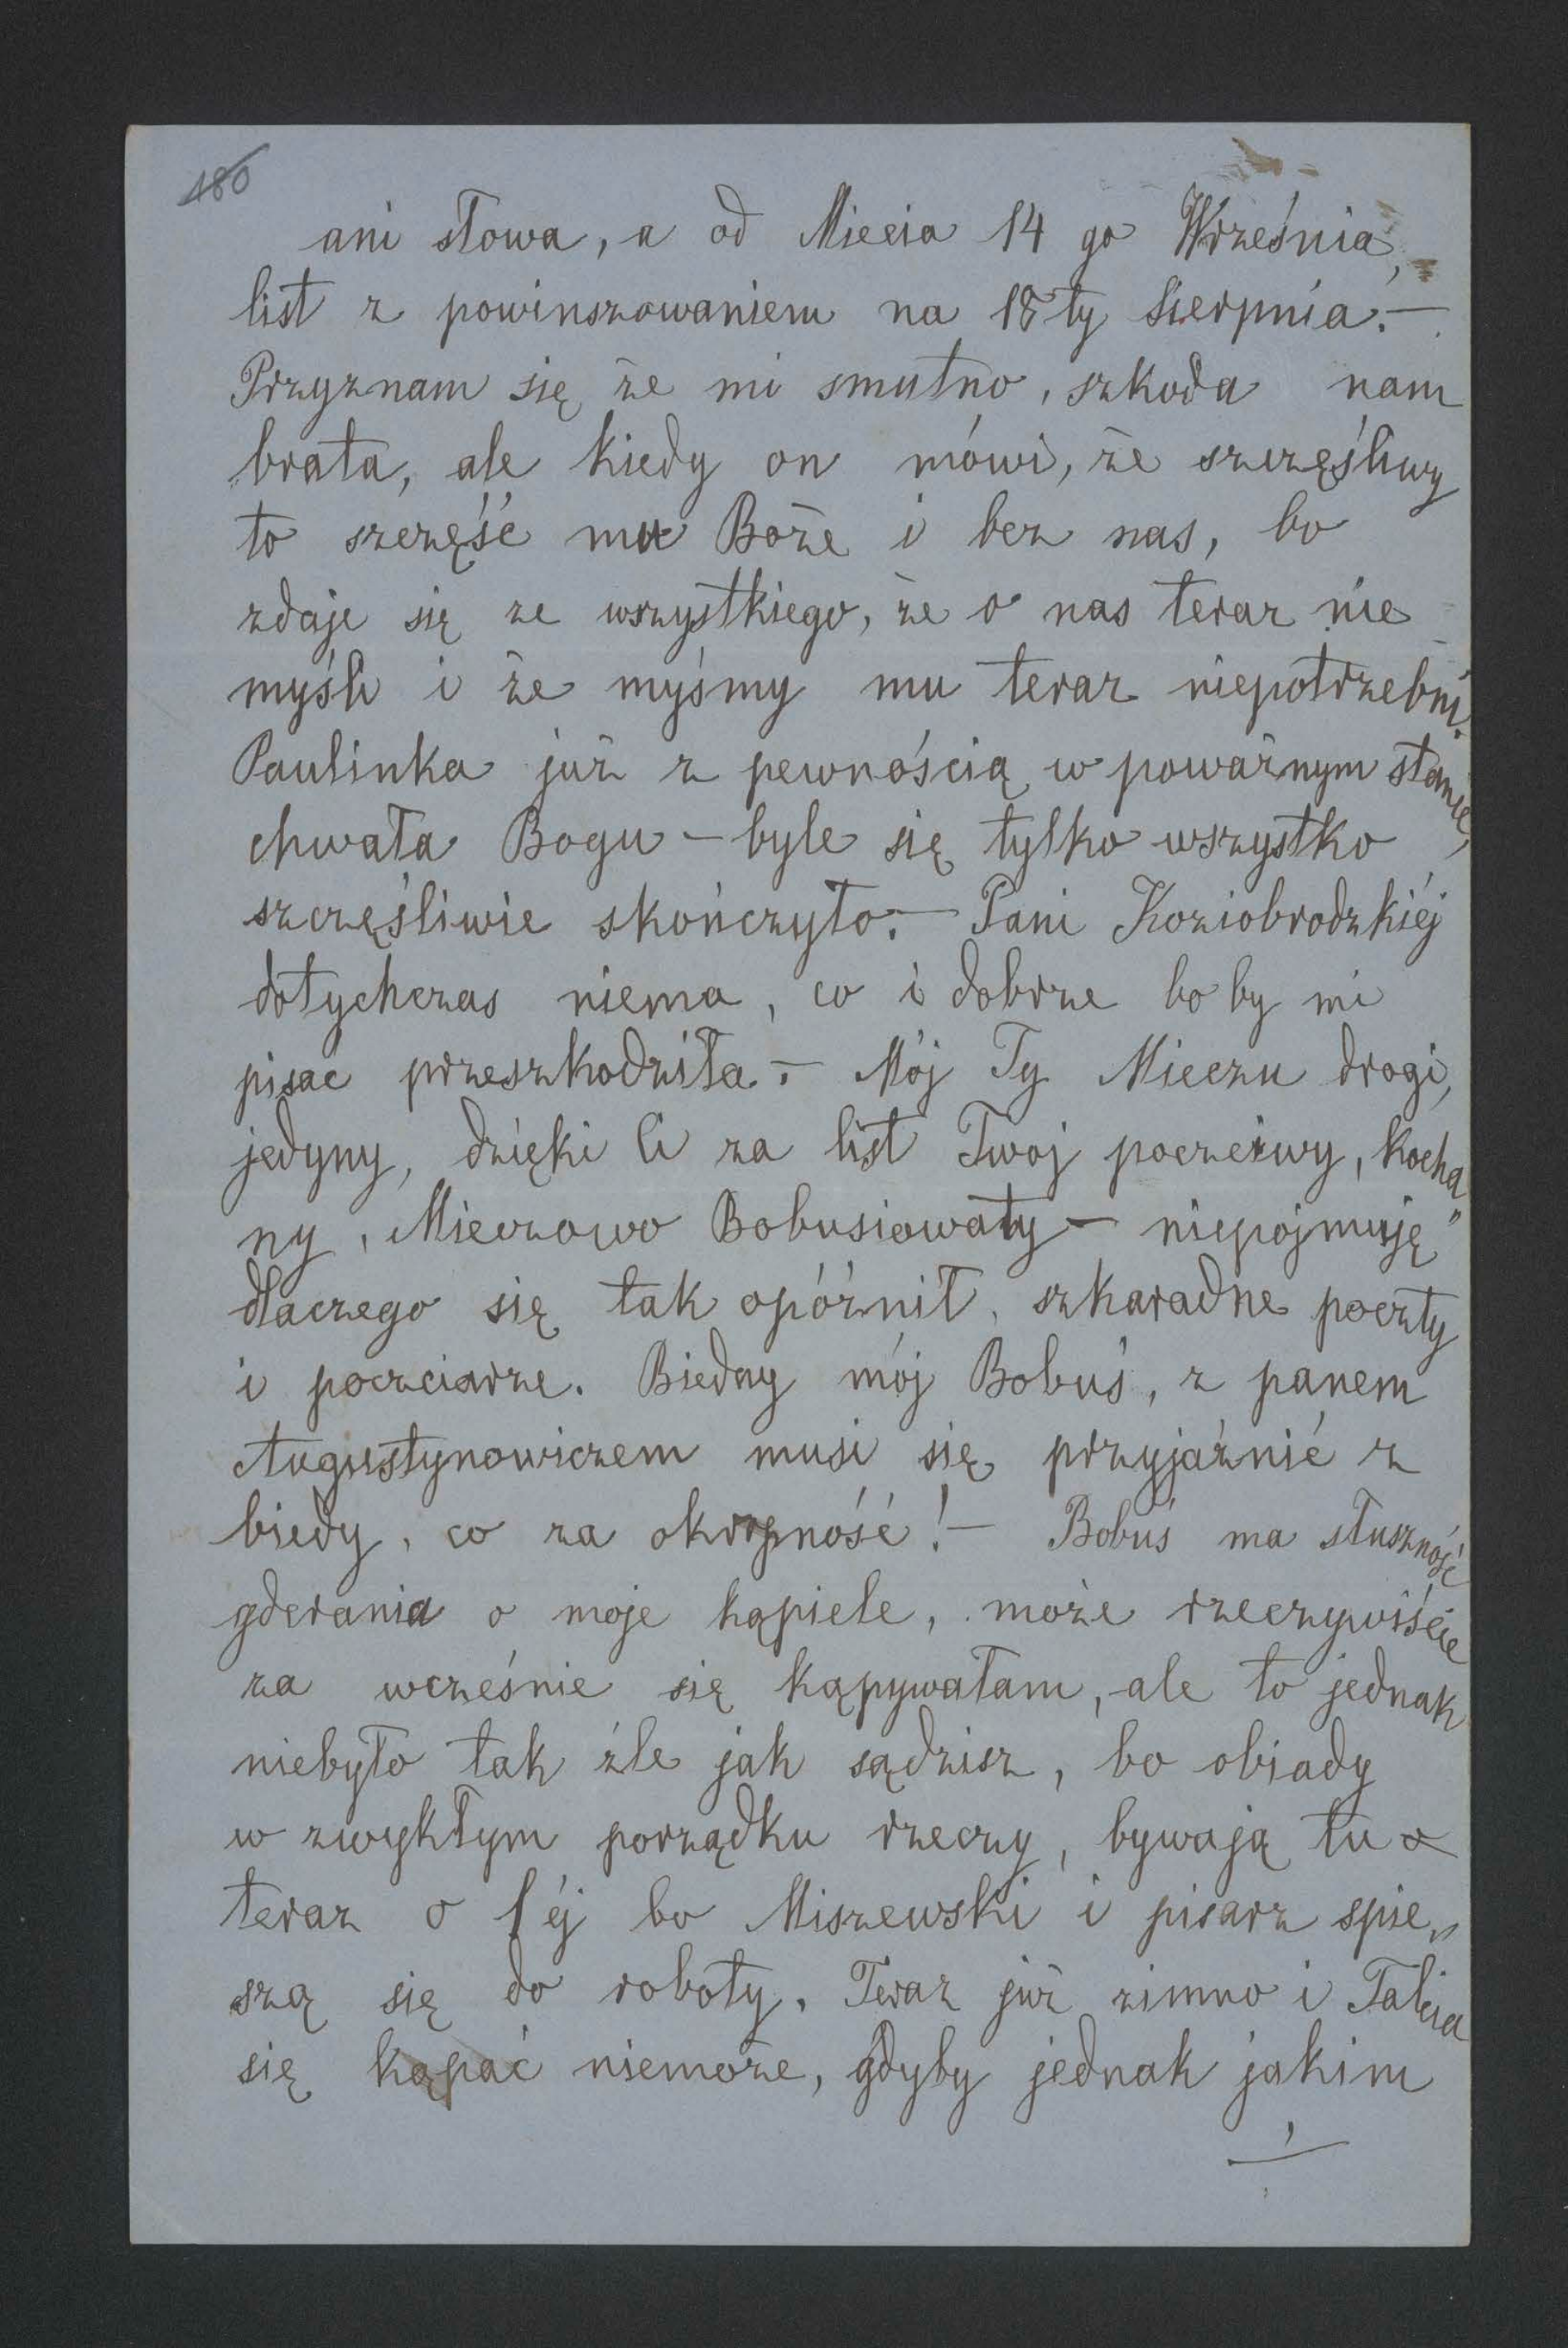 180
ani słowa, a od Miecia 14 go Września,
list z powinszowaniem na 18ty Sierpnia.—
Przyznam się że mi smutno, szkoda nam
brata, ale kiedy on mówi, że szczęśliwy
to szczęść mu Boże i bez nas, bo
zdaje się ze wszystkiego, że o nas teraz nie
myśli i że myśmy mu teraz niepotrzebni.
Paulinka już z pewnością w poważnym stanie,
chwała Bogu — byle się tylko wszystko
szczęśliwie skończyło.— Pani Koziobrodzkiéj
dotychczas niema, co i dobrze bo by mi
pisać przeszkodziła.— Mój Ty Mieczu drogi,
jedyny, dzięki Ci za list Twoj poczciwy, kocha„
ny, Mieczowo Bobusiowaty — niepojmuję
dlaczego się tak opóźnił, szkaradne poczty
i poczciarze. Biedny mój Bobuś, z panem
Augustynowiczem musi się przyjaźnić z
biedy, co za okropność!— Bobuś ma słuszność
gderania o moje kąpiele, może rzeczywiście
za wcześnie się kąpywałam, ale to jednak
niebyło tak źle jak sądzisz, bo obiady
w zwykłym porządku rzeczy, bywają tu
teraz o 1éj bo Miszewski i pisarz spie„
szą się do roboty. Teraz już zimno i Talcia
się kąpać niemoże, gdyby jednak jakim